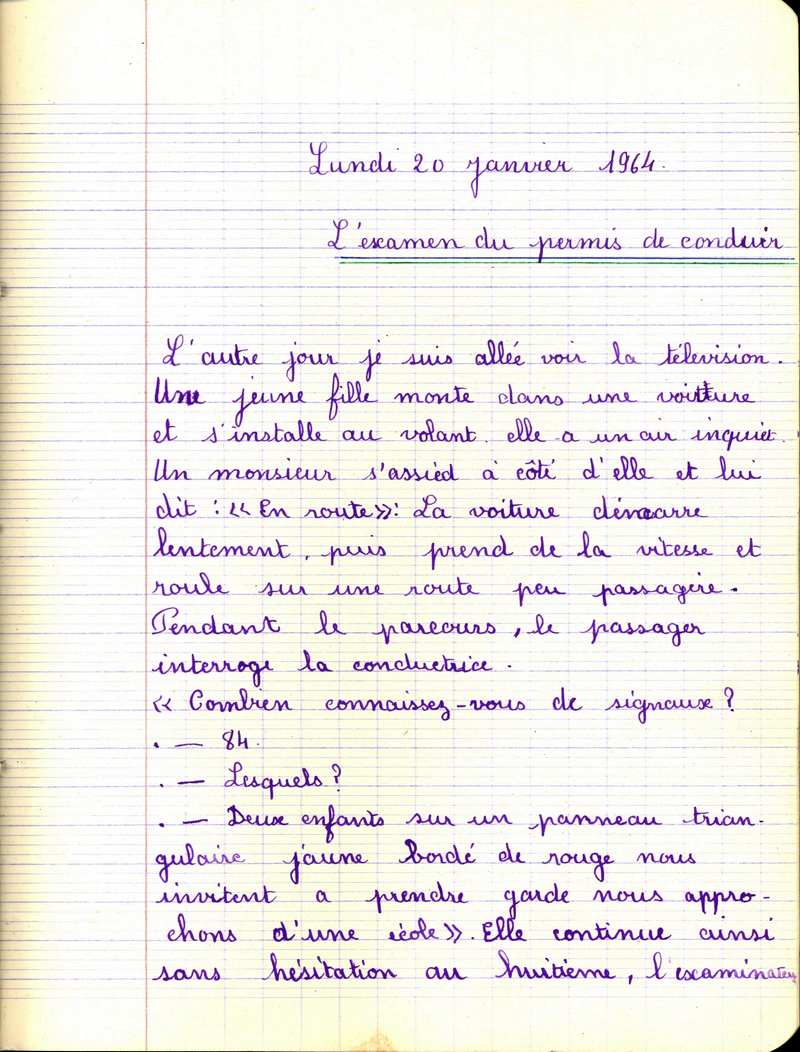 Lundi 20 janvier 1964.
L'examen du permis de conduir
L'autre jour je suis allée voir la télevision.
Une jeune fille monte dans une voiture
et s'installe au volant. elle a un air inquiet.
Un monsieur s'assied à côté d'elle et lui
dit : « En route»: La voiture démarre
lentement, puis prend de la vitesse et
roule sur une route peu passagère.
Pendant le parcours, le passager
interroge la conductrice.
« Combien connaissez-vous de signaux ?
. — 84.
. — Lesquels ?
. — Deux enfants sur un panneau trian-
gulaire jaune bordé de rouge nous
invitent a prendre garde nous appro-
chons d'une école ». Elle continue ainsi
sans hésitation au huitième, l'examinateur